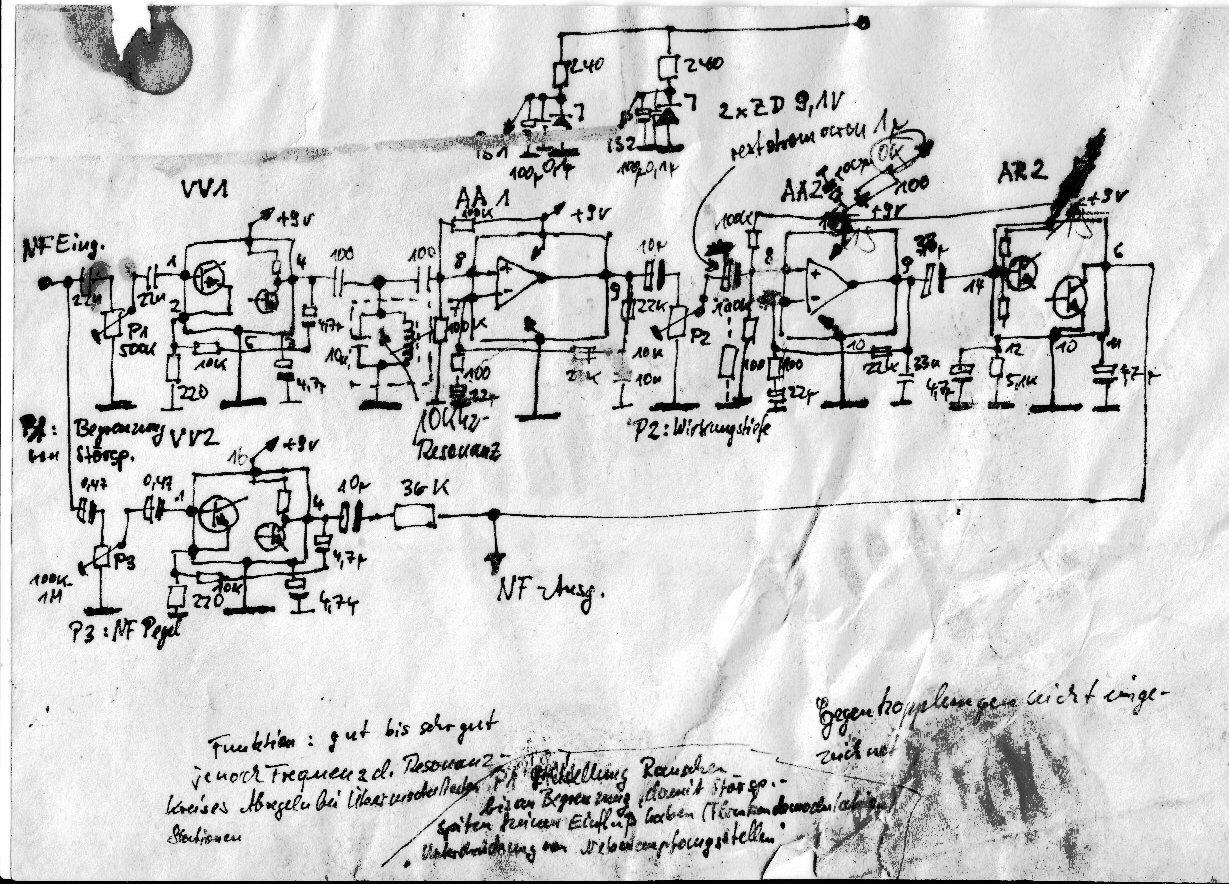 240
240
7
7
2xZD 9,1V
IS1
IS2
100µ 0,1µ
100µ 0,1µ
1µ
VV1
AA1
AA2
AR2
100
+9V
+9V
+9V
+9V
NF Eing.
100K
100K
1
4
100
100
8
10µ
8
9
33µ
14
6
22n
22n
P1
500K
2
5
3
4,7µ
10K
220
4,7µ
10n
7
100K
100
22µ
9
22K
10K
10n
P2
100K
100
100
22µ
10
22K
33n
12
10
11
4,7µ
5,1K
4,7µ
10KHz-
Resonanz
P2: Wirkungstiefe
P1: Begrenzung
von Störsp.
VV2
16
+9V
0,47
0,47
1
4
10µ
36K
P3
100K-
1M
220
10K
4,7µ
4,7µ
NF-Ausg.
P3: NF Pegel
Funktion: gut bis sehr gut
jenach Frequenz d. Resonanz-
kreises Abregeln bei
Stationen
P1 Rauschen
bis an Begrenzung, damit Störsp.-
keinen Einfluß haben
Unterdrückung von Nebenempfangsstellen
Gegenkopplungen nicht einge-